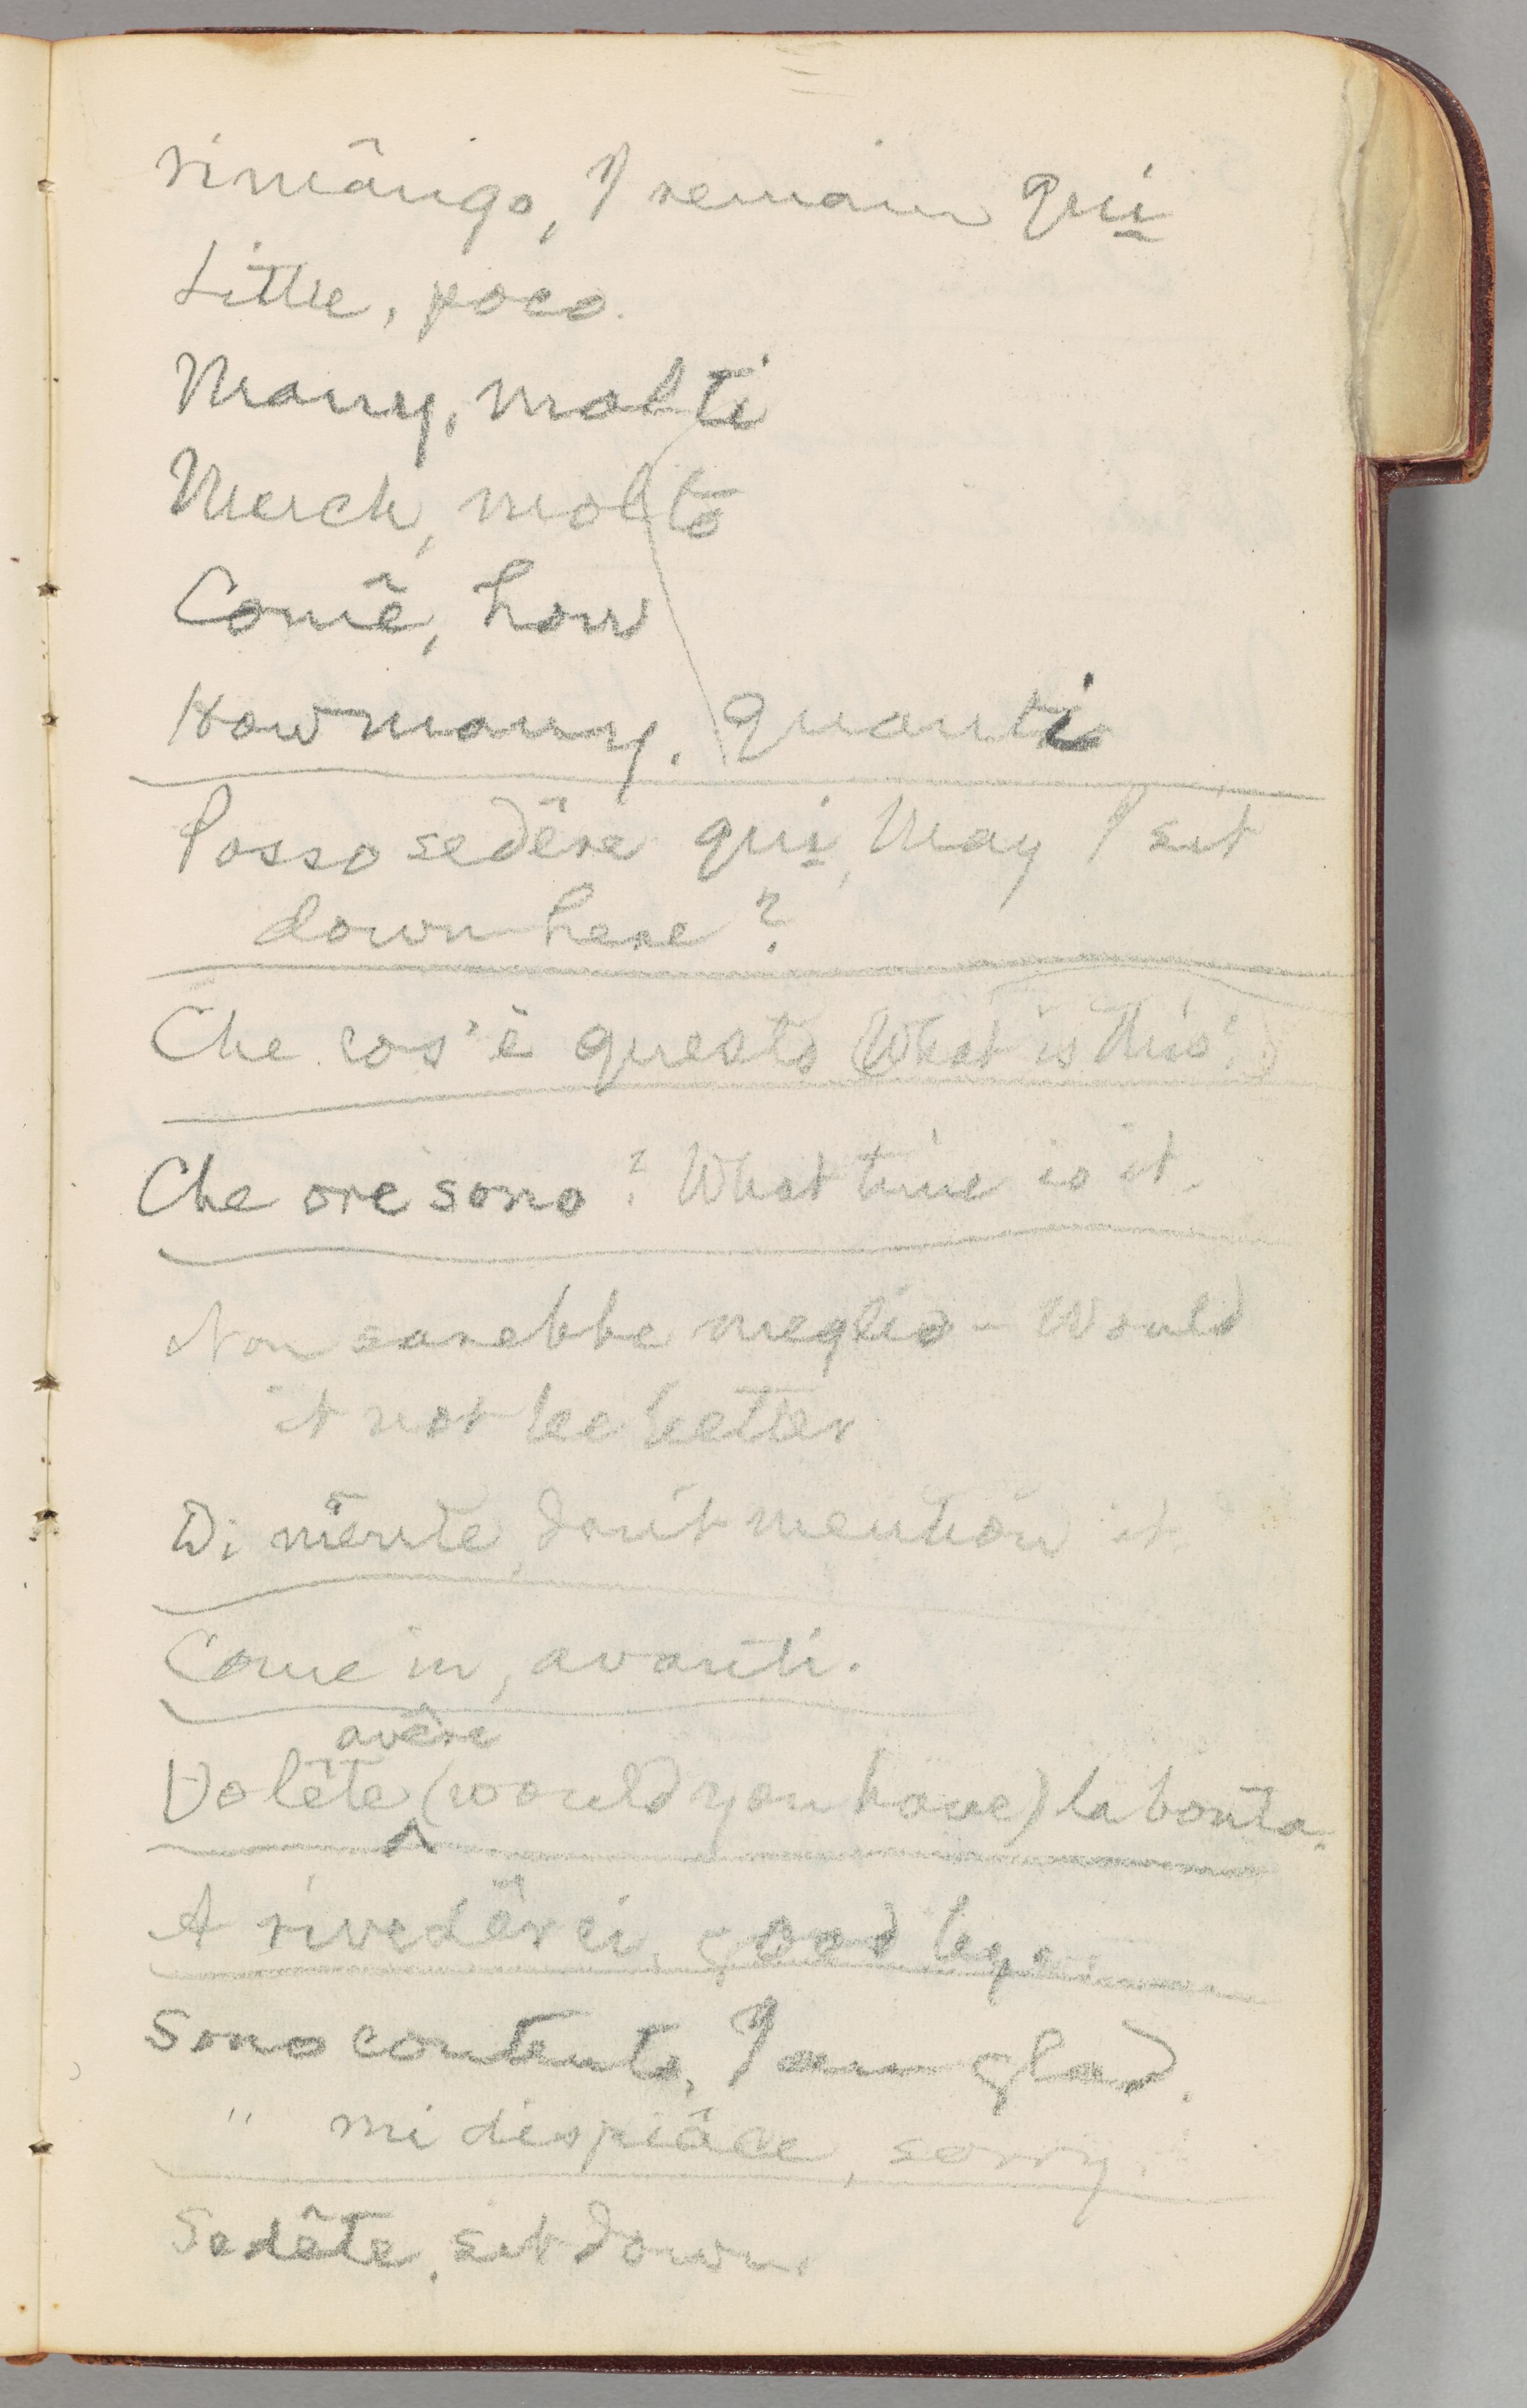 rimângo, I remain qui
Little, poco.
Many, molti
Much, molto
Comê, how
How many. quanti
Posso sedêre qui, May I sit
down here?
Che cos'è questo (What is this?)
Che ore sono? What time is it.
Non sarebbe meglio - Would
it not be better
Di niênte, don't mention it.
Come in, avanti.
avêre
Volête (would you have) la bonta.
^
A rivedêrci, good bye
Sono contento, I am glad.
" mi dispiâce, sorry.
Sedête, sit down.